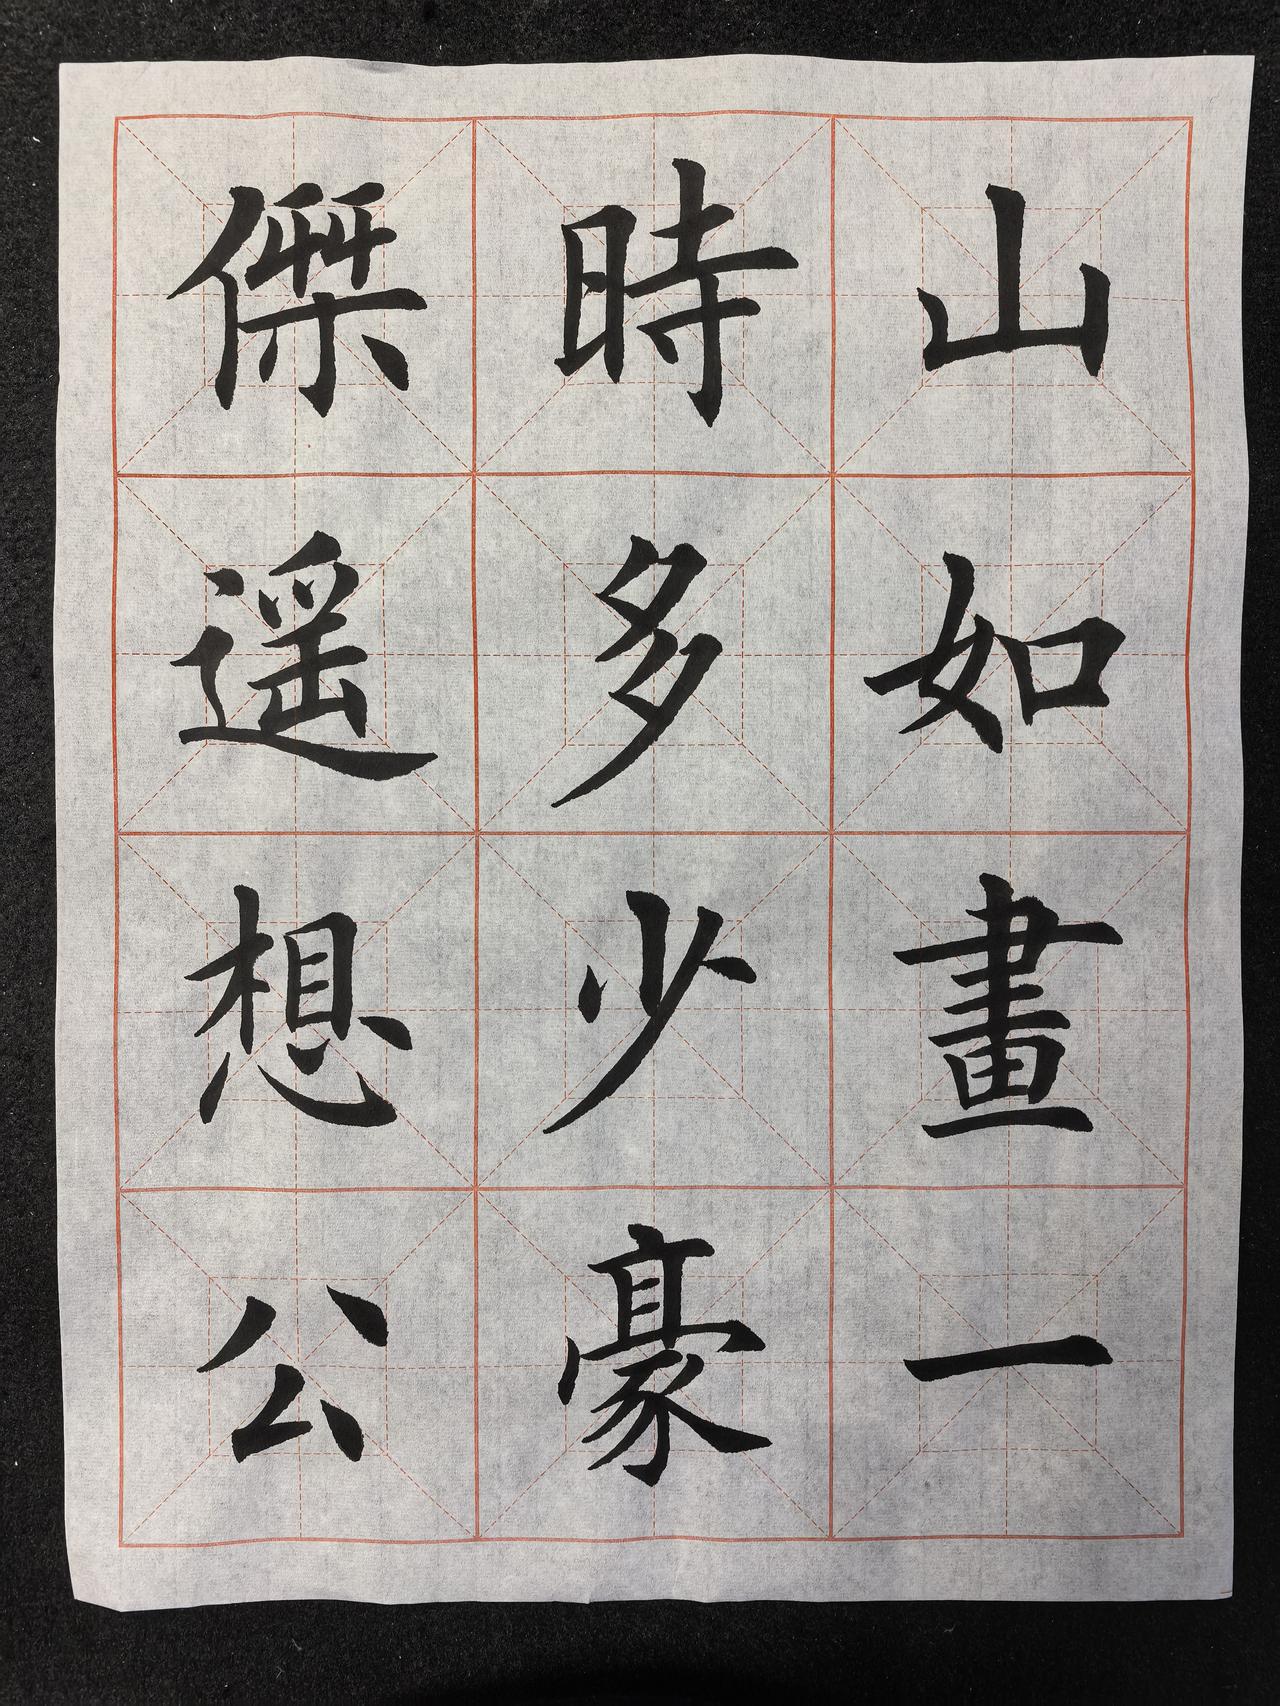 山如畫一
時多少豪
傑遥想公